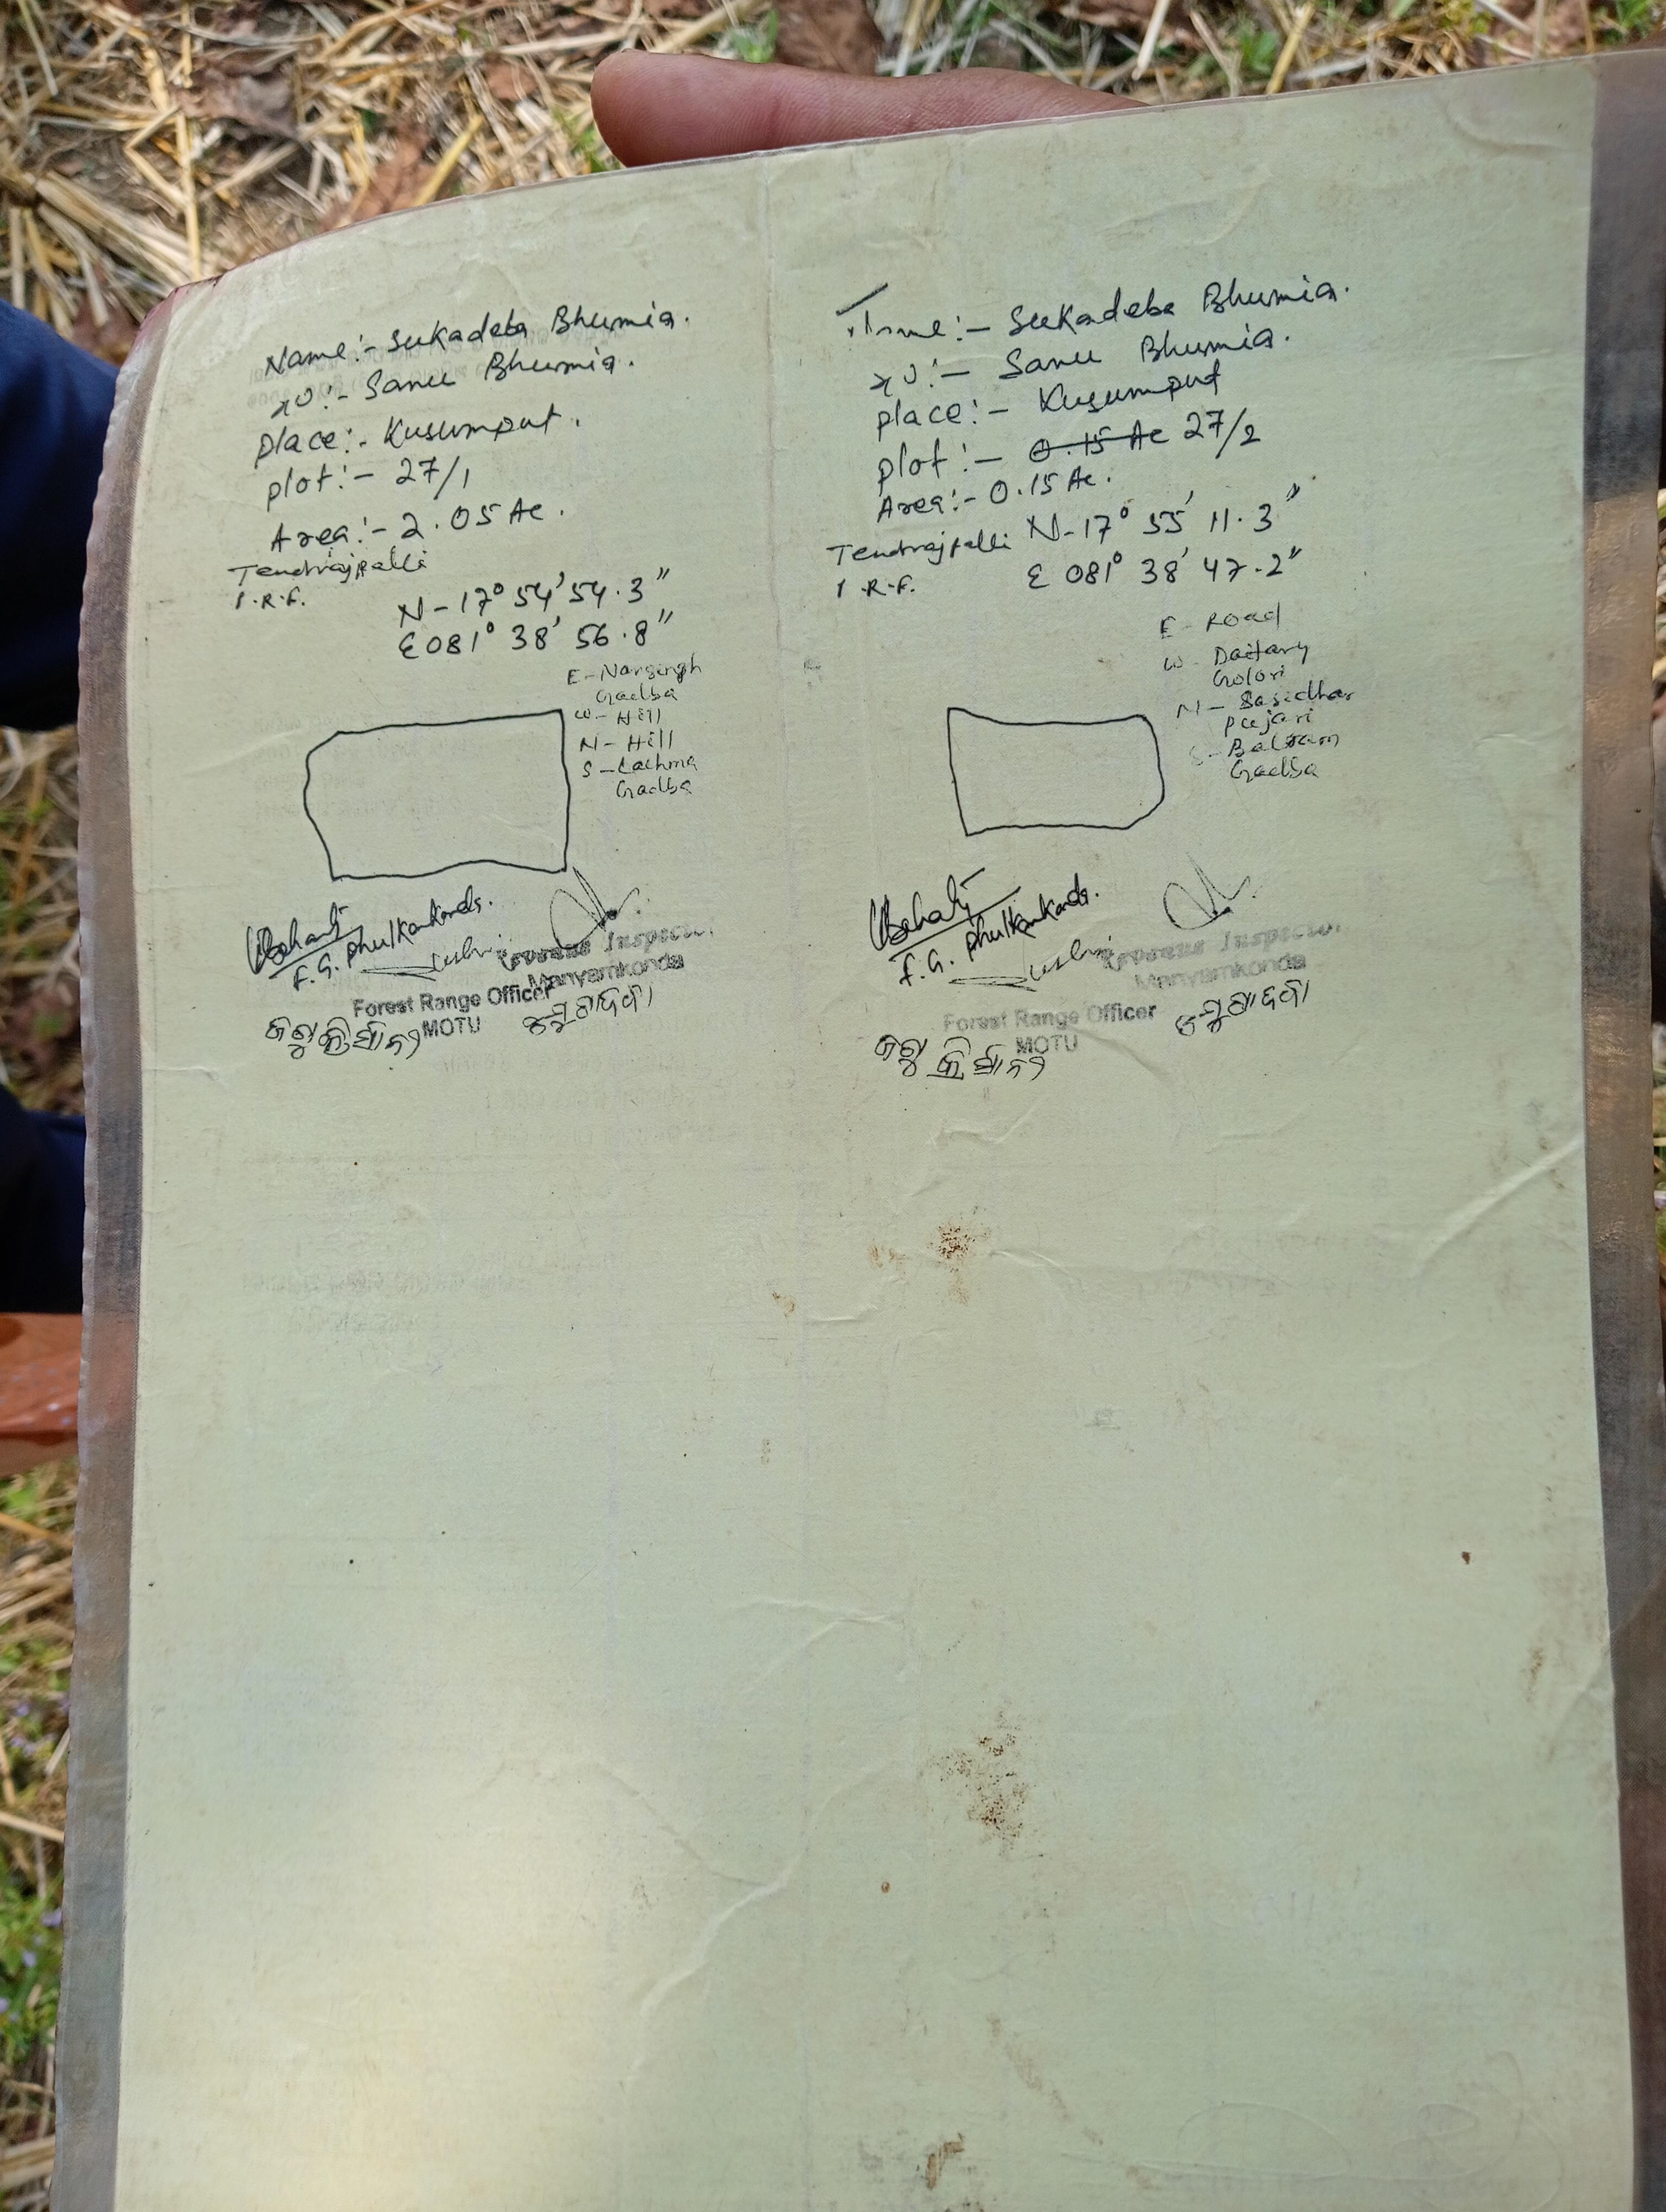 Name:- Sukadeba Bhumia.
S/O:- Sanu Bhumia.
Place:- Kusumput.
Plot:- 27/1
Area:- 2.05 Ac.
Tendrajpalli
P.R.F.
N-17° 54' 54.3"
E 081° 38' 56.8"
E-Narsingh
Gadba
W-Hill
N-Hill
S-Lachma
Gadba
F.G. Phulkankonda.
Revenue Inspector
Manyamkonda
Forest Range Officer
MOTU
Name:- Sukadeba Bhumia.
S/O:- Sanu Bhumia.
Place:- Kusumput
Plot:- 0.15 Ac 27/2
Area:- 0.15 Ac.
Tendrajpalli
P.R.F.
N-17° 55' 11.3"
E 081° 38' 47.2"
E-Road
W-Daitary
Golori
N-Sasidhar
Pujari
S-Balram
Gadba
F.G. Phulkankonda.
Revenue Inspector
Manyamkonda
Forest Range Officer
MOTU